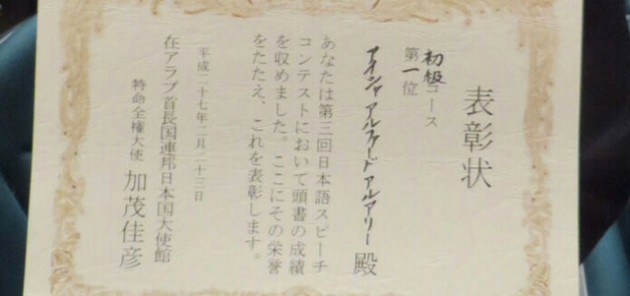 表彰状
初級コース
第一位
アイシャ アルスァード アルアリー 殿
あなたは第三回日本語スピーチ
コンテストにおいて頭書の成績
を収めました。ここにその栄誉
をたたえ、これを表彰します。
平成二十七年二月二十三日
在アラブ首長国連邦日本国大使館
特命全権大使 加茂佳彦